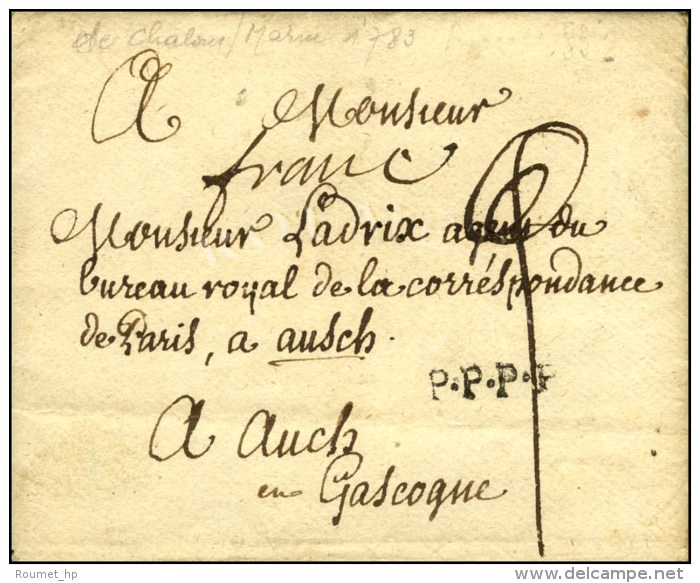 de chalons/Marne 1783
A Monsieur
franc
Monsieur Ladrix agent du
bureau royal de la corréspondance
de Paris, a ausch.
P.P.P.P
A Auch
en Gascogne
Roumet_hp
© www.delcampe.net